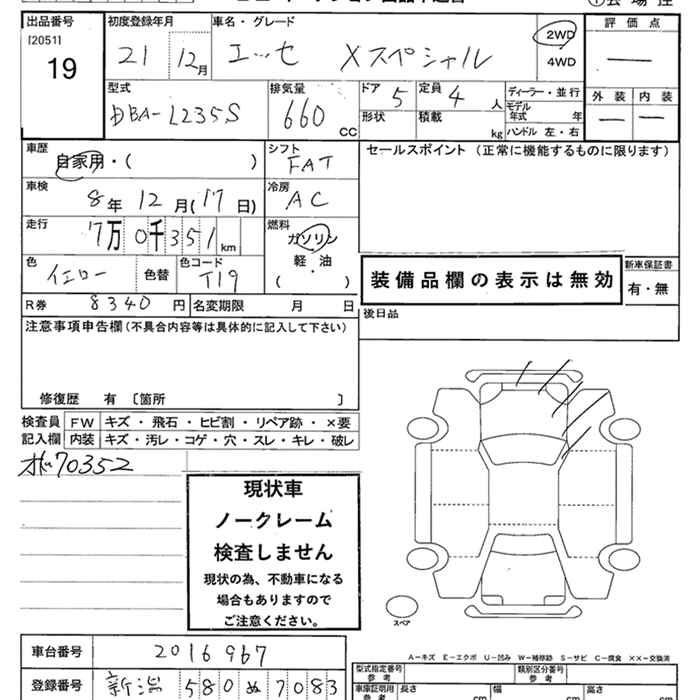 出品番号 初度登録年月 車名・グレード ①会場控
[2051] 21 12月 エッセ Xスペシャル 2WD 評価点
19 4WD —
型式 排気量 ドア 定員 ディーラー・並行 外装 内装
DBA-L235S 660 CC 5 4 人 モデル年式 年 — —
形状 積載 kg ハンドル 左・右
車歴 シフト セールスポイント (正常に機能するものに限ります)
自家用・( ) FAT
車検 冷房
8年 12月(17日) AC
走行 燃料
7万0千351km ガソリン
軽・油
色 色替 色コード ・
イエロー T19 ( )
装備品欄の表示は無効
新車保証書
有・無
R券 8340円 名変期限 月 日 後日品
注意事項申告欄(不具合内容等は具体的に記入して下さい)
修復歴 有 〔箇所 〕
検査員 FW キズ・飛石・ヒビ割・リペア跡・×要
記入欄 内装 キズ・汚レ・コゲ・穴・スレ・キレ・破レ
70352
現状車
ノークレーム
検査しません
現状の為、不動車になる
場合もありますので
ご注意ください。
スペア
車台番号 2016967
A-キズ E-エクボ U-凹み W-補修跡 S-サビ C-腐食 XX-交換済
登録番号 新潟 580 ぬ 7083
型式指定番号 参考 類別区分番号 参考
車庫証明用 参考 長さ cm 幅 cm 高さ cm